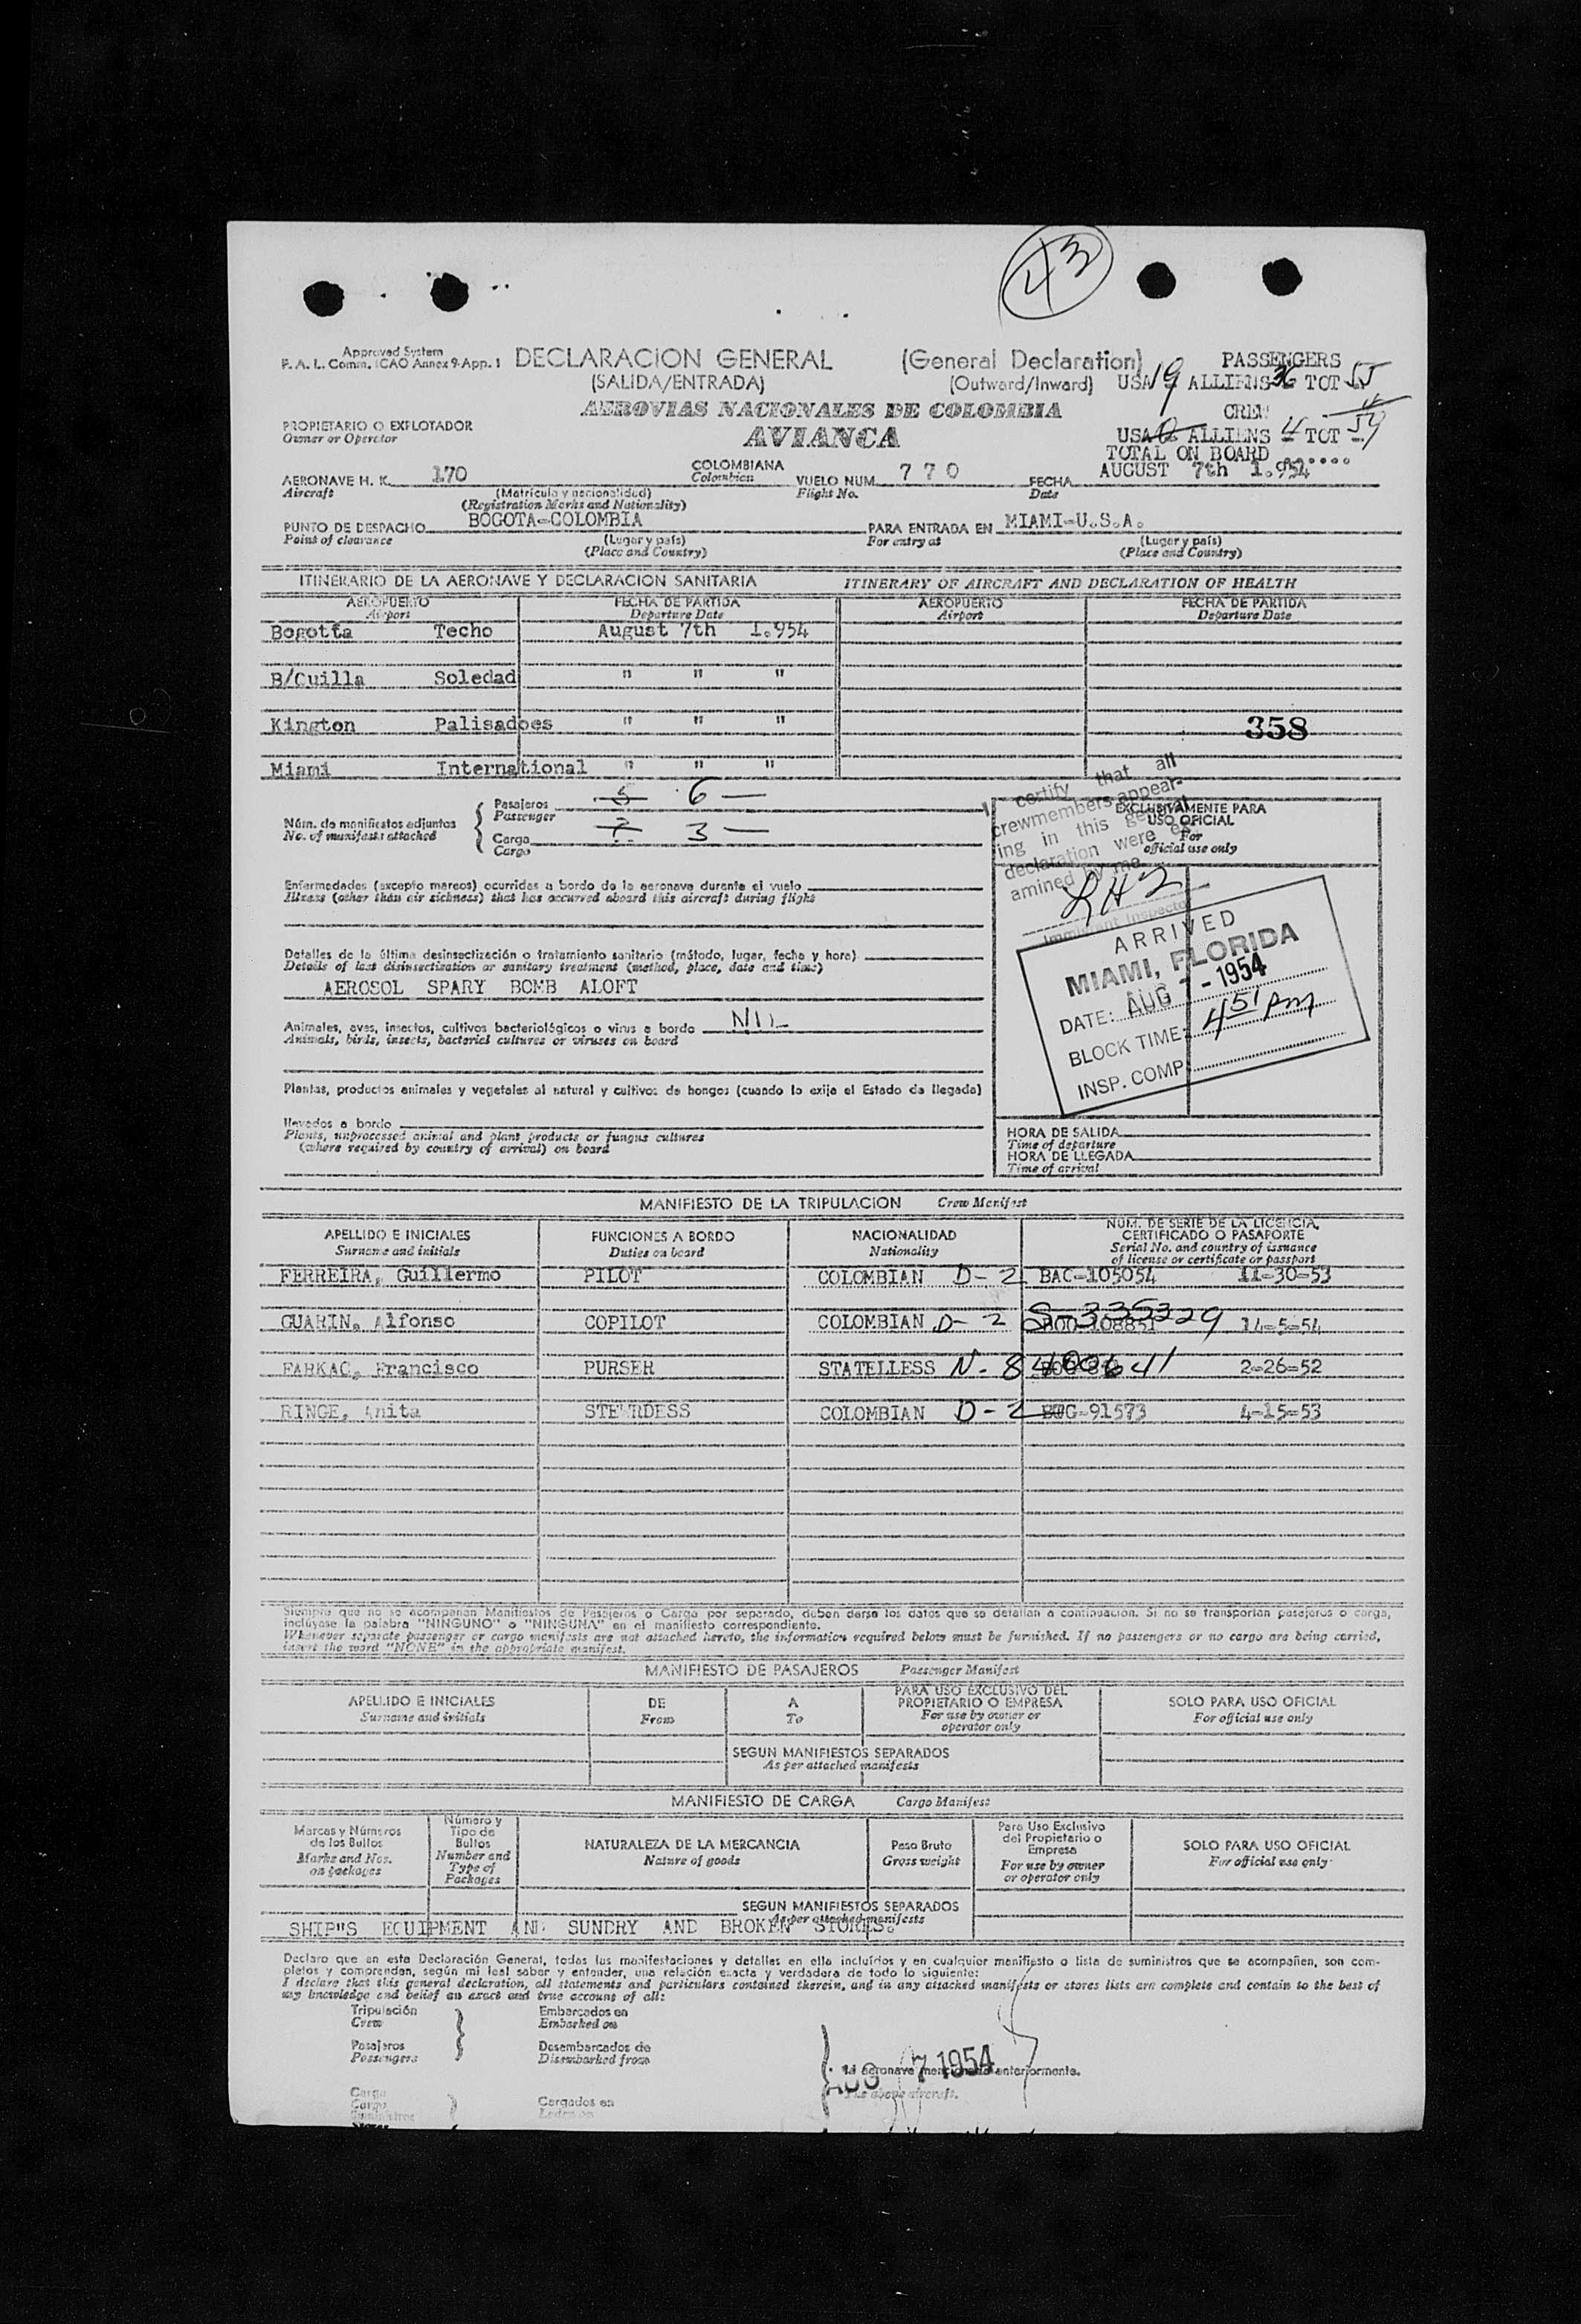 43
Approved System
F. A. L. Comm. ICAO Annex 9-App. 1
DECLARACION GENERAL (General Declaration)
(SALIDA/ENTRADA) (Outward/Inward)
PASSENGERS
USA 19 ALLIENS 36 TOT 55
AEROVIAS NACIONALES DE COLOMBIA
AVIANCA
CREW 4
USA 0 ALLIENS 4 TOT 59
TOTAL ON BOARD
PROPIETARIO O EXPLOTADOR
Owner or Operator
AERONAVE H. K. 170 COLOMBIANA VUELO NUM. 770 FECHA AUGUST 7th 1.954
Aircraft Colombian Flight No. Date
(Matrícula y nacionalidad)
(Registration Marks and Nationality)
PUNTO DE DESPACHO BOGOTA-COLOMBIA PARA ENTRADA EN MIAMI-U.S.A.
Point of clearance (Lugar y país) For entry at (Lugar y país)
(Place and Country) (Place and Country)
ITINERARIO DE LA AERONAVE Y DECLARACION SANITARIA ITINERARY OF AIRCRAFT AND DECLARATION OF HEALTH
AEROPUERTO FECHA DE PARTIDA AEROPUERTO FECHA DE PARTIDA
Airport Departure Date Airport Departure Date
Bogotta Techo August 7th 1.954
B/Cuilla Soledad " " "
Kington Palisadoes " " "
358
Miami International " " "
Núm. de manifiestos adjuntos
No. of manifests attached
Pasajeros 5 6 —
Passenger
Carga 3 —
Cargo
I certify that all
crewmembers appear-
ing in this general
declaration were ex-
amined by me
Immigrant Inspector
EXCLUSIVAMENTE PARA
USO OFICIAL
For
official use only
Enfermedades (excepto mareos) ocurridas a bordo de la aeronave durante el vuelo
Illness (other than air sickness) that has occurred aboard this aircraft during flight
Detalles de la última desinsectización o tratamiento sanitario (método, lugar, fecha y hora)
Details of last disinsectization or sanitary treatment (method, place, date and time)
AEROSOL SPARY BOMB ALOFT
ARRIVED
MIAMI, FLORIDA
DATE: AUG 7 - 1954
BLOCK TIME: 451 pm
INSP. COMP:
Animales, aves, insectos, cultivos bacteriológicos o virus a bordo NIL
Animals, birds, insects, bacterial cultures or viruses on board
Plantas, productos animales y vegetales al natural y cultivos de hongos (cuando lo exija el Estado de llegada)
llevados a bordo
Plants, unprocessed animal and plant products or fungus cultures
(where required by country of arrival) on board
HORA DE SALIDA
Time of departure
HORA DE LLEGADA
Time of arrival
MANIFIESTO DE LA TRIPULACION Crew Manifest
APELLIDO E INICIALES FUNCIONES A BORDO NACIONALIDAD NUM. DE SERIE DE LA LICENCIA,
CERTIFICADO O PASAPORTE
Surname and initials Duties on board Nationality Serial No. and country of issuance
of license or certificate or passport
FERREIRA, Guillermo PILOT COLOMBIAN D-2 BAC-105054 11-30-53
GUARIN, Alfonso COPILOT COLOMBIAN D-2 S-335329 14-5-54
FARKAC, Francisco PURSER STATELLESS N-8400641 2-26-52
RINGE, Anita STEWRDESS COLOMBIAN D-2 BOG-91573 4-15-53
Siempre que no se acompañan Manifiestos de Pasajeros o Carga por separado, deben darse los datos que se detallan a continuación. Si no se transportan pasajeros o carga,
inclúyase la palabra "NINGUNO" o "NINGUNA" en el manifiesto correspondiente.
Whenever separate passenger or cargo manifests are not attached hereto, the information required below must be furnished. If no passengers or no cargo are being carried,
insert the word "NONE" in the appropriate manifest.
MANIFIESTO DE PASAJEROS Passenger Manifest
APELLIDO E INICIALES DE A PARA USO EXCLUSIVO DEL
PROPIETARIO O EMPRESA SOLO PARA USO OFICIAL
Surname and initials From To For use by owner or
operator only For official use only
SEGUN MANIFIESTOS SEPARADOS
As per attached manifests
MANIFIESTO DE CARGA Cargo Manifest
Marcas y Números
de los Bultos
Marks and Nos.
on packages
Número y
Tipo de
Bultos
Number and
Type of
Packages
NATURALEZA DE LA MERCANCIA
Nature of goods
Peso Bruto
Gross weight
Para Uso Exclusivo
del Propietario o
Empresa
For use by owner
or operator only
SOLO PARA USO OFICIAL
For official use only
SEGUN MANIFIESTOS SEPARADOS
As per attached manifests
SHIP"S EQUIPMENT AND SUNDRY AND BROKEN STORES.
Declaro que en esta Declaración General, todas las manifestaciones y detalles en ella incluídos y en cualquier manifiesto o lista de suministros que se acompañen, son com-
pletos y comprenden, según mi leal saber y entender, una relación exacta y verdadera de todo lo siguiente:
I declare that this general declaration, all statements and particulars contained therein, and in any attached manifests or stores lists are complete and contain to the best of
my knowledge and belief an exact and true account of all:
Tripulación Embarcados en
Crew Embarked on
Pasajeros Desembarcados de
Passengers Disembarked from
la aeronave mencionada anteriormente.
The above aircraft.
AUG 7 1954
Carga Cargados en
Cargo Laden on
Suministros
Stores